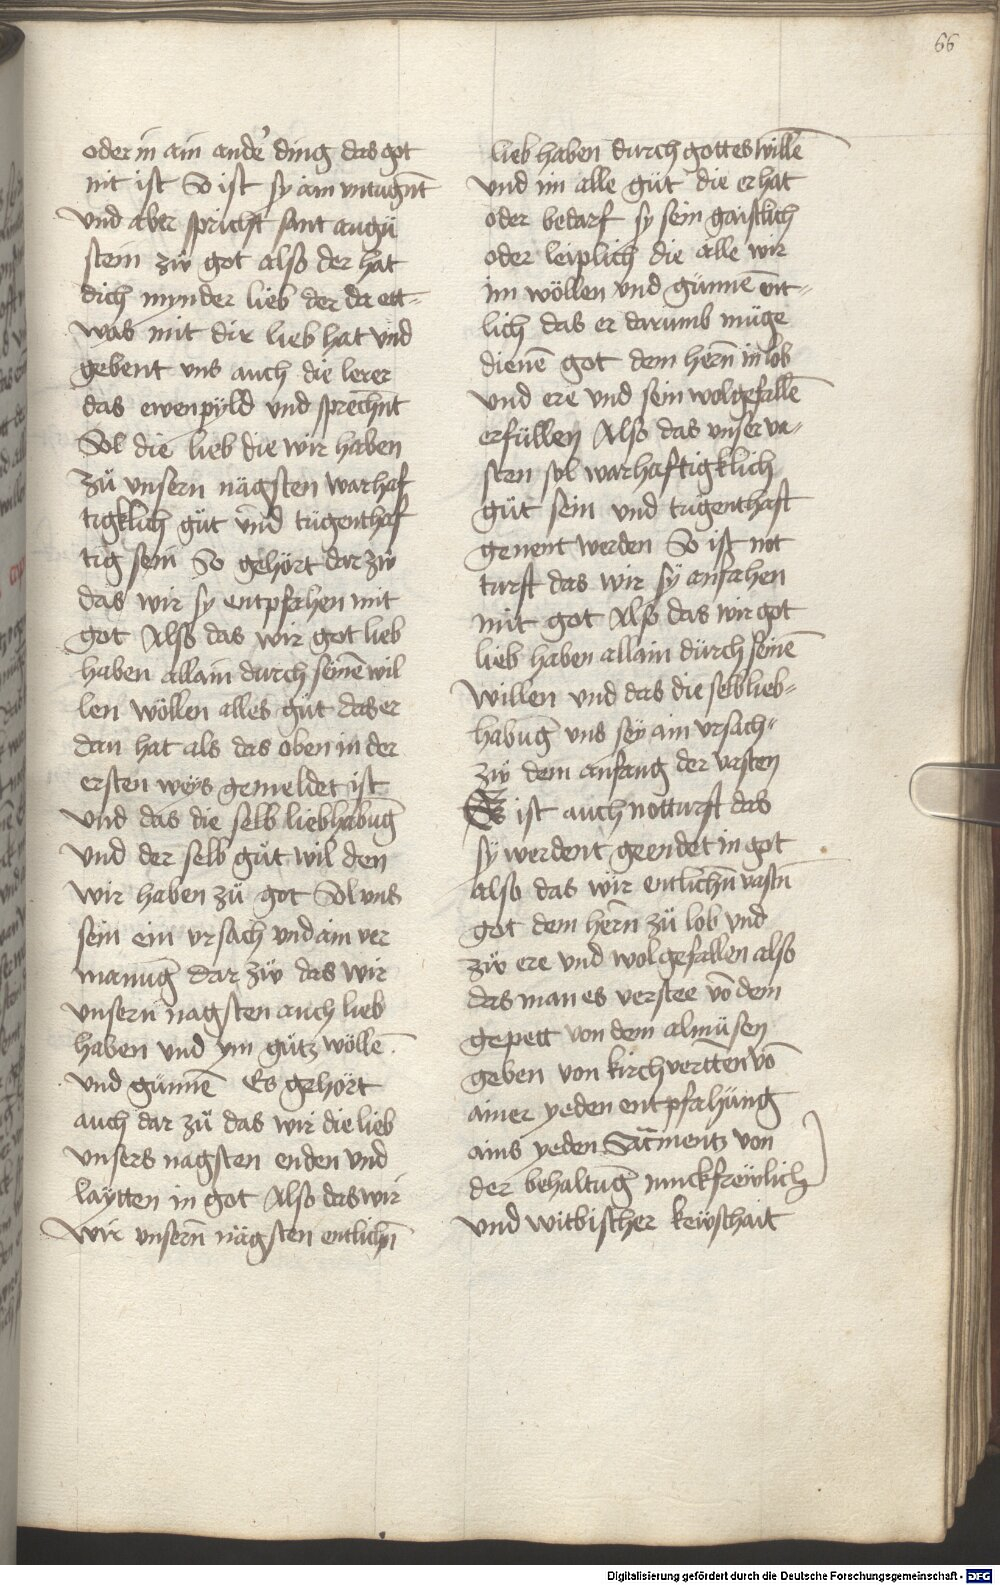 66
oder in ain ander̕ ding das got
nit ist So ist sy ain vntugn̄t
vnd aber spricht sant augu
stein zw̆ got also der hat
dich mynder lieb der da ett-
was mit dir lieb hat vnd
gebent vns auch die lerer
das ewenpyld vnd sprechnt
Sol die lieb die wir haben
zu̇ vnsern nägsten warhaf
tigklich gu̇t vnd tugenthaf
tig sein So gehört dar zw̆
das wir sy entpfahen mit
got Also das wir got lieb
haben allain durch seinē wil
len wöllen alles gu̇t das er
dan hat als das oben in der
ersten weys gemeldet ist
vnd das die selb liebhabūg
vnd der selb gu̇t wil den
wir haben zu̇ got Sol vns
sein ein vrsach vnd ain ver
manūg dar zw̆ das wir
vnsern nagsten auch lieb
haben vnd ym gu̇tz wöllē
vnd günnē Es gehört
auch dar zu̇ das wir die lieb
vnsers nagsten enden vnd
laytten in got Also das wir
wir vnsern̄ nägsten entlichn̄
lieb haben durch gottes willē
vnd im alle gu̇t die er hat
oder bedarf sy sein gaistlich
oder leiplich die alle wir
im wöllen vnd günnē ent-
lich das er darumb müge
dienē got dem hern̄ in lob
vnd ere vnd sein wolgefallē
erfüllen Also das vnser va-
sten sol warhaftigklich
gu̇t sein vnd tugenthaft
genent werden So ist not
turft das wir sy anfahen
mit got Also das wir got
lieb haben allain durch seinē
willen vnd das die selb lieb-
habūg vns sey ain vrsach
zw̆ dem anfang der vasten
Es ist auch notturft das
sy werdent geendet in got
also das wir entlichn̄ vastn̄
got dem hern̄ zu̇ lob vnd
zw̆ ere vnd wolgefallen also
das man es verstee vō dem
gepett von dem almu̇sen
geben von kirchvertten vō
ainer yeden entpfahung
ains yeden Sac̄mentz von
der behaltūg junckfrewlich
vnd witbischer kewschait
Digitalisierung gefördert durch die Deutsche Forschungsgemeinschaft - DFG